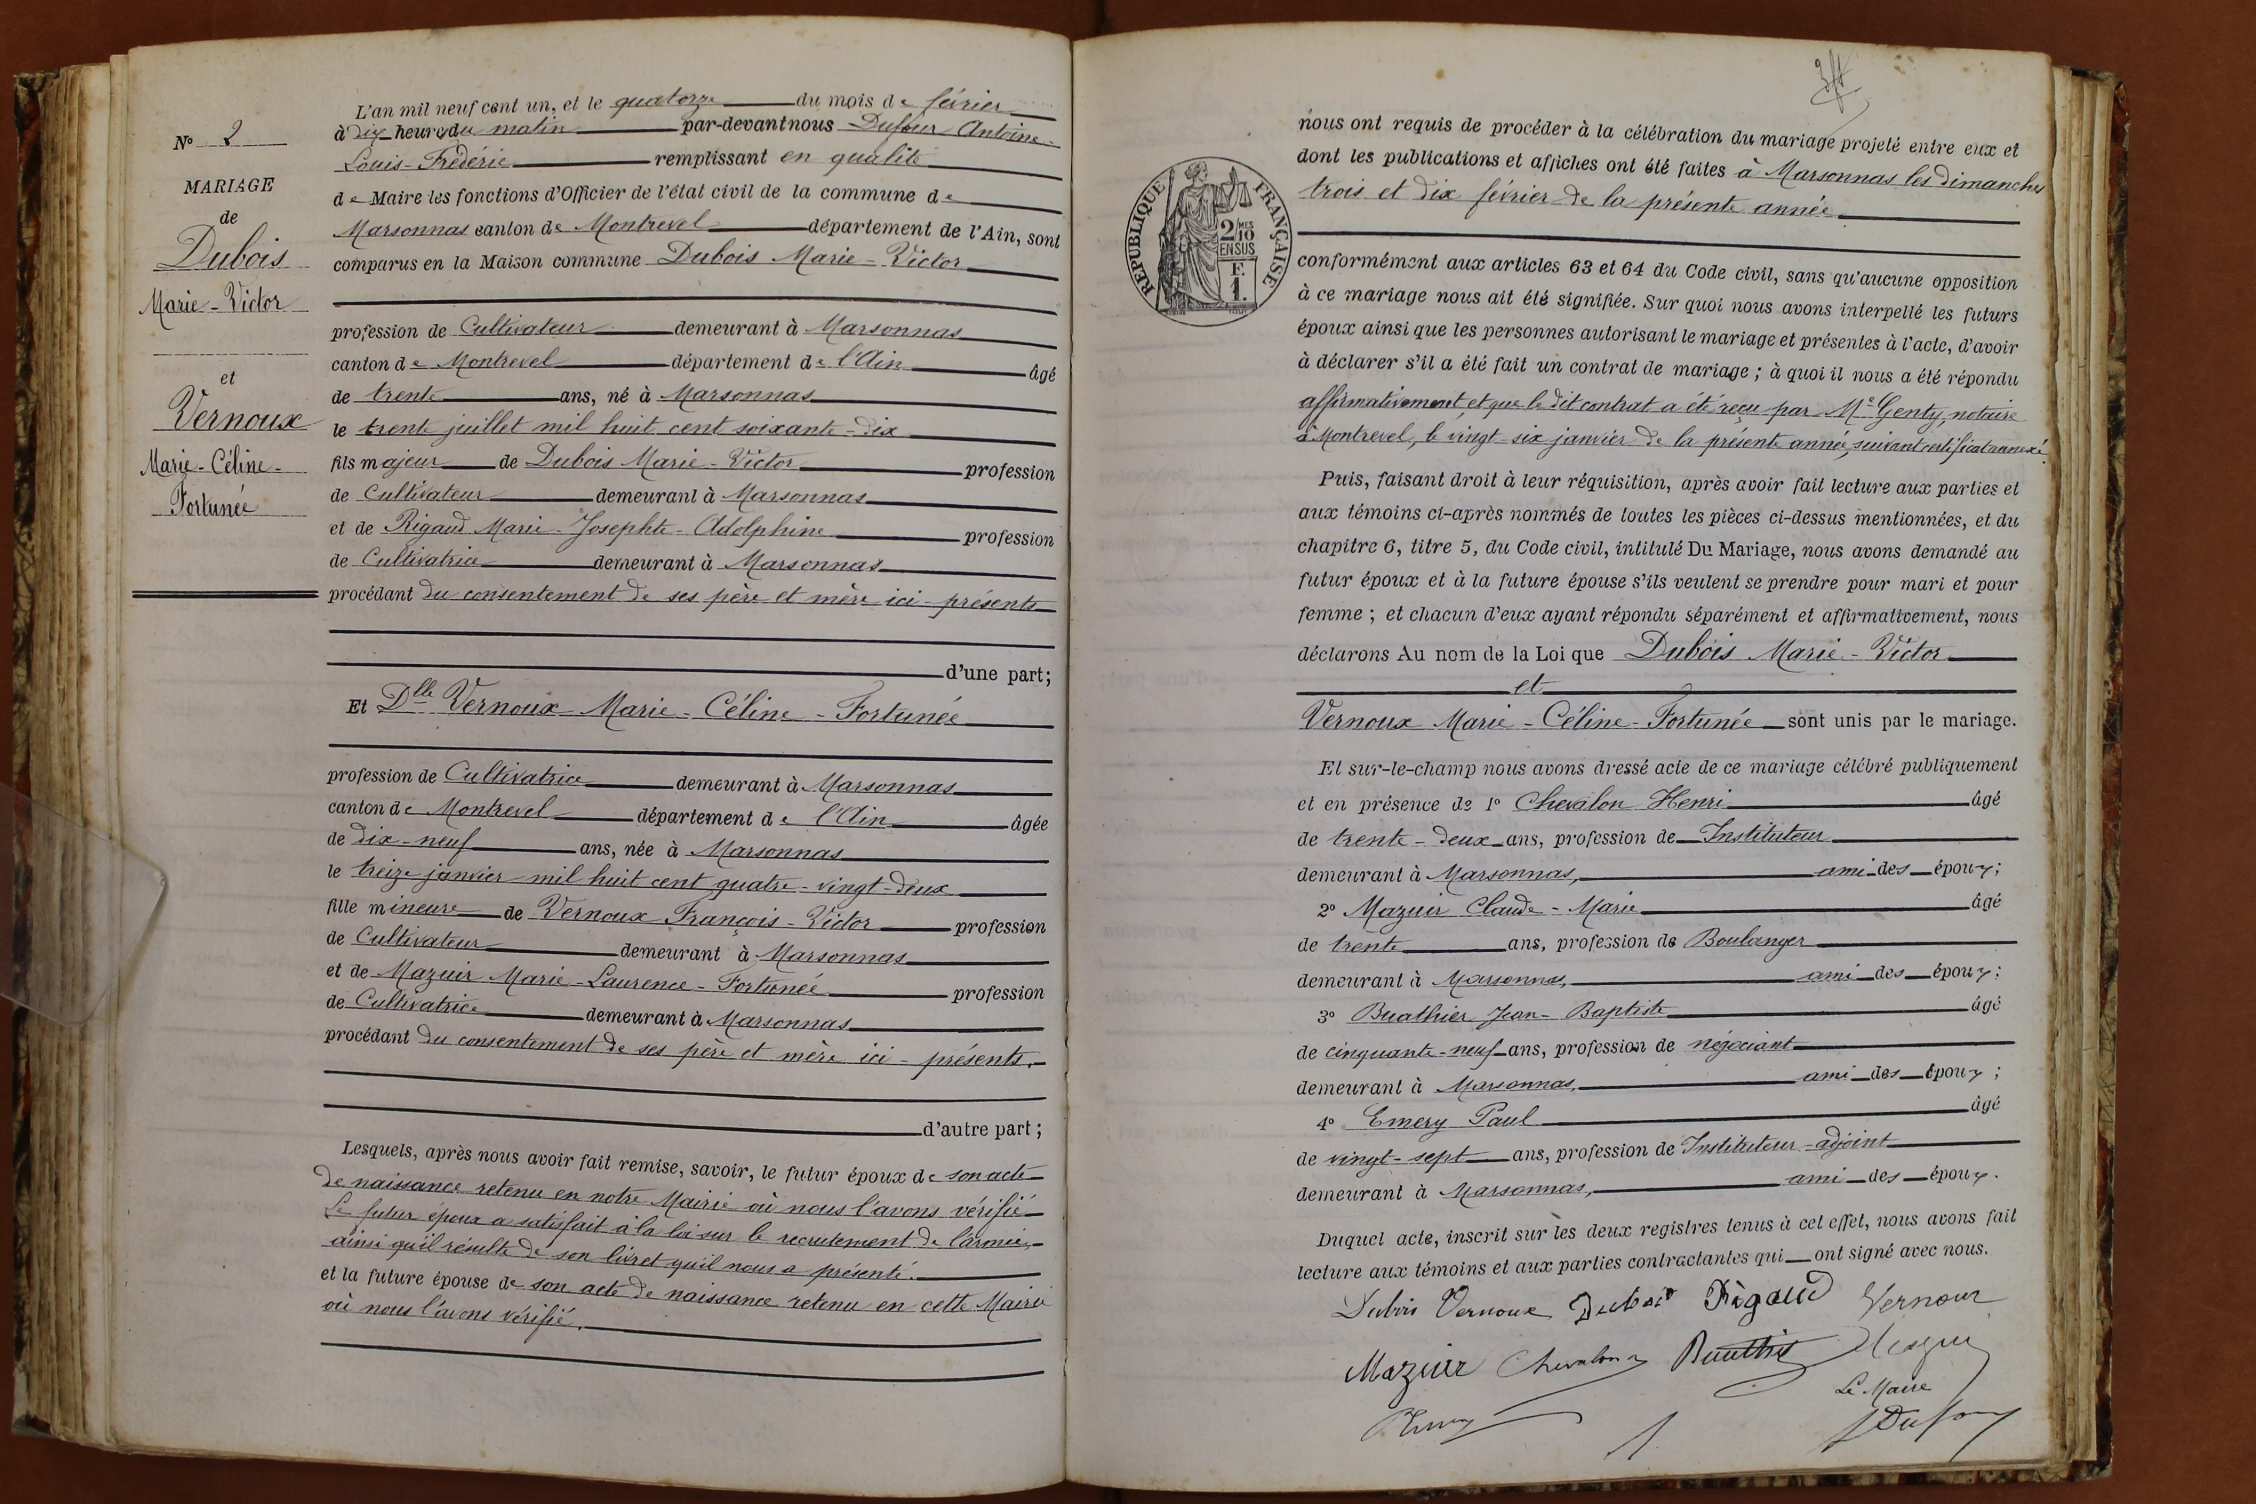 N° 2
MARIAGE
de
Dubois
Marie-Victor
et
Vernoux
Marie-Céline-
Fortunée
L'an mil neuf cent un, et le quatorze du mois de février
à dix heures du matin par-devant nous Dufour Antoine-
Louis-Frédéric remplissant en qualité
de Maire les fonctions d'Officier de l'état civil de la commune de
Marsonnas canton de Montrevel département de l'Ain, sont
comparus en la Maison commune Dubois Marie-Victor
profession de Cultivateur demeurant à Marsonnas
canton de Montrevel département de l'Ain âgé
de trente ans, né à Marsonnas
le trente juillet mil huit cent soixante-dix
fils majeur de Dubois Marie-Victor profession
de Cultivateur demeurant à Marsonnas
et de Rigaud Marie-Josephte-Adolphine profession
de Cultivatrice demeurant à Marsonnas
procédant du consentement de ses père et mère ici-présents
d'une part;
Et Dlle Vernoux Marie-Céline-Fortunée
profession de Cultivatrice demeurant à Marsonnas
canton de Montrevel département de l'Ain âgée
de dix-neuf ans, née à Marsonnas
le treize janvier mil huit cent quatre-vingt-deux
fille mineure de Vernoux François-Victor profession
de Cultivateur demeurant à Marsonnas
et de Mazuir Marie-Laurence-Fortunée profession
de Cultivatrice demeurant à Marsonnas
procédant du consentement de ses père et mère ici-présents.
d'autre part;
Lesquels, après nous avoir fait remise, savoir, le futur époux de son acte
de naissance retenu en notre Mairie où nous l'avons vérifié
Le futur époux a satisfait à la loi sur le recrutement de l'armée,
ainsi qu'il résulte de son livret qu'il nous a présenté.
et la future épouse de son acte de naissance retenu en cette Mairie
où nous l'avons vérifié.
RÉPUBLIQUE FRANÇAISE
2/10MES
EN SUS
F.
1.
nous ont requis de procéder à la célébration du mariage projeté entre eux et
dont les publications et affiches ont été faites à Marsonnas les dimanches
trois et dix février de la présente année
conformément aux articles 63 et 64 du Code civil, sans qu'aucune opposition
à ce mariage nous ait été signifiée. Sur quoi nous avons interpellé les futurs
époux ainsi que les personnes autorisant le mariage et présentes à l'acte, d'avoir
à déclarer s'il a été fait un contrat de mariage; à quoi il nous a été répondu
affirmativement et que le dit contrat a été reçu par Me Genty, notaire
à Montrevel, le vingt-six janvier de la présente année, suivant certificat annexé.
Puis, faisant droit à leur réquisition, après avoir fait lecture aux parties et
aux témoins ci-après nommés de toutes les pièces ci-dessus mentionnées, et du
chapitre 6, titre 5, du Code civil, intitulé Du Mariage, nous avons demandé au
futur époux et à la future épouse s'ils veulent se prendre pour mari et pour
femme; et chacun d'eux ayant répondu séparément et affirmativement, nous
déclarons Au nom de la Loi que Dubois Marie-Victor
et
Vernoux Marie-Céline-Fortunée sont unis par le mariage.
Et sur-le-champ nous avons dressé acte de ce mariage célébré publiquement
et en présence de 1° Chevalon Henri âgé
de trente-deux ans, profession de Instituteur
demeurant à Marsonnas, ami des époux;
2° Mazuir Claude-Marie âgé
de trente ans, profession de Boulanger
demeurant à Marsonnas, ami des époux;
3° Buathier Jean-Baptiste âgé
de cinquante-neuf ans, profession de négociant
demeurant à Marsonnas, ami des époux;
4° Emery Paul âgé
de vingt-sept ans, profession de Instituteur-adjoint
demeurant à Marsonnas, ami des époux.
Duquel acte, inscrit sur les deux registres tenus à cet effet, nous avons fait
lecture aux témoins et aux parties contractantes qui ont signé avec nous.
Dubois Vernoux Dubois Rigaud Vernoux
Mazuir Chevalon Buathier Mazuir
Le Maire
PEmery Dufour